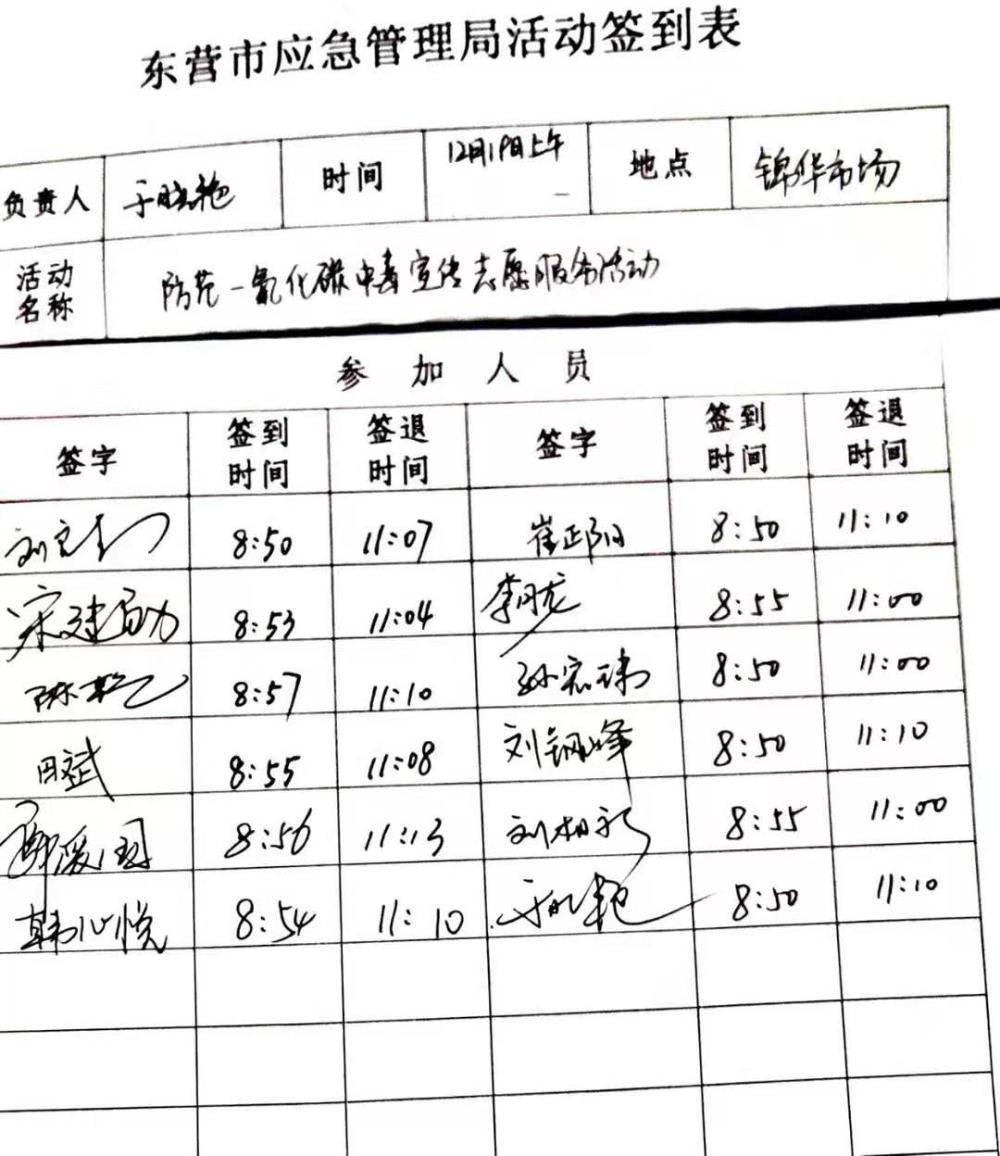 东营市应急管理局活动签到表
负责人 于晓艳 时间 12月19日上午 地点 锦华市场
活动名称 防范一氧化碳中毒宣传志愿服务活动
参加人员
签字 签到时间 签退时间 签字 签到时间 签退时间
8:50 11:07 崔正阳 8:50 11:10
宋建勋 8:53 11:04 李月龙 8:55 11:00
8:57 11:10 孙宏玮 8:50 11:00
田斌 8:55 11:08 刘钢峰 8:50 11:10
8:56 11:13 刘相永 8:55 11:00
韩心悦 8:54 11:10 于晓艳 8:50 11:10